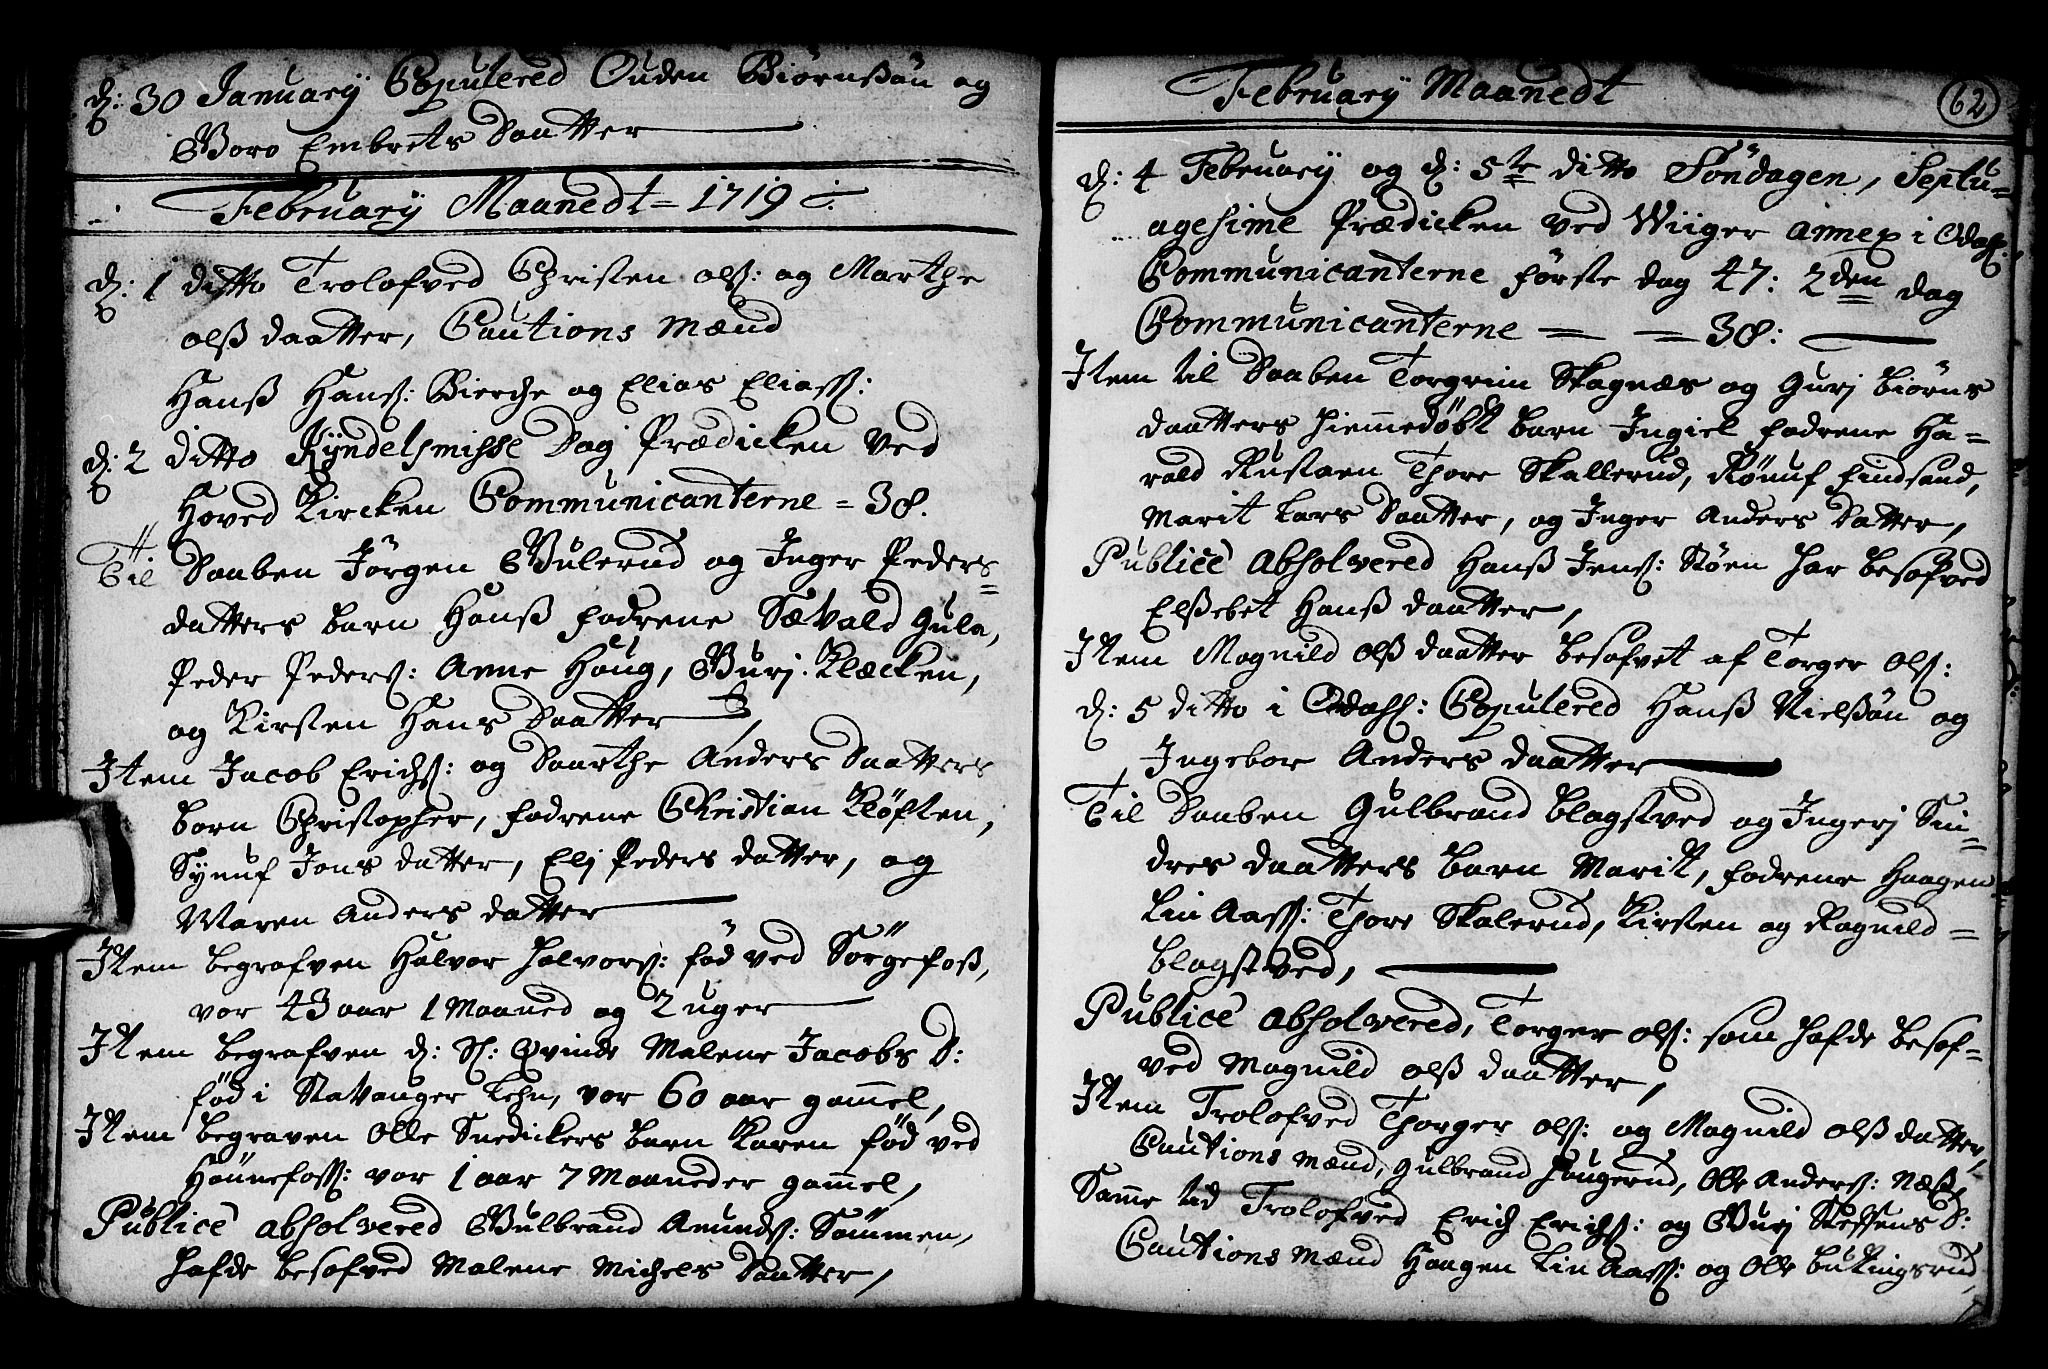 d: 30 January Copulered Ouden Biørnßøn og
Goro Embrets Daatter
February Maanedt = 1719
d: 1 ditto Trolofved Christen olß: og Marthe
olß daatter, Cautions Mænd
Hanß Hanß: Bierche og Elias Eliasß:
d: 2 ditto Kyndelsmisse Dag Prædicken ved
Hoved Kircken Communicanterne = 38.
Til Daaben Jørgen Gulerud og Inger Peders=
datters barn Hanß fadrene Sævald Gula,
Peder Pederß: Anne Houg, Gurj Klæcken,
og Kirsten Hans Daatter
Item Jacob Erichß: og Daarthe Anders Daatters
barn Christopher, fadrene Christian Kløften,
Synuf Jons datter, Elj Peders datter, og
Maren Anders datter
Item begrafven Halvor Halvorß: fød ved Sørgefoß,
var 43 aar 1 Maaned og 2 uger
Item begrafven d: Sl: Qvinde Malene Jacobs D:
fød i Stavanger Lehn, var 60 aar gammel,
Item begraven Olle Snedickers barn Karen fød ved
Hønnefosß: var 1 aar 7 Maaneder gammel,
Publicè absolvered Gulbrand Amundß: Sammen,
hafde besofved Malene Michels Daatter,
February Maanedt
62
d: 4 February og d: 5te ditto Søndagen, Septu=
agesime Prædicken ved Wiiger annex i Odahl:
Communicanterne første dag 47: 2den dag
Communicanterne = = 38:
Item til Daaben Torgrim Skagnæs og Gurj Biørns
daatters hiemmedøbt barn Ingiel fadrene Ha=
rald Rustaen Thore Skallerud, Rønuf Findsand,
Marit Lars Daatter, og Inger Anders Datter,
Publicè absolvered Hanß Jenß: Støen har besofved
Elßebet Hanß daatter,
Item Magnild olß daatter besofvet af Torger olß:
d: 5 ditto i Odahl: Copulered Hanß Nielßøn og
Ingebor Anders daatter
Til Daaben Gulbrand Blagstved og Ingerj Sin=
dres daatters barn Marit, fadrene Haagen
Lin Aasß: Thore Skalerud, Kirsten og Ragnild=
Blagstved,
Publicè absolvered, Torger olß: som hafde besof=
ved Magnild olß daatter,
Item Trolofved Thorger olß: og Magnild olß datter,
Cautions mænd, Gulbrand Haugerud, Olle Anderß: Næß,
Samme tid Trolofved Erich Erichß: og Gurj Steffens D:
Cautions Mænd Haagen Lin Aasß: og Olle Bukingsrud,